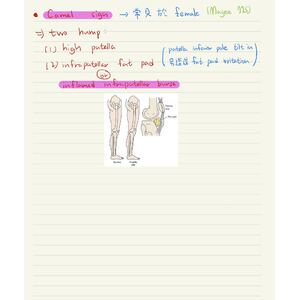 • Camel sign → 常見於 female (Magee 925)
⇒ two hump:
(1) high patella
(2) infrapatellar fat pad (patella inferior pole tilt in 易造成 fat pad irritation)
or
inflamed infrapatellar bursa